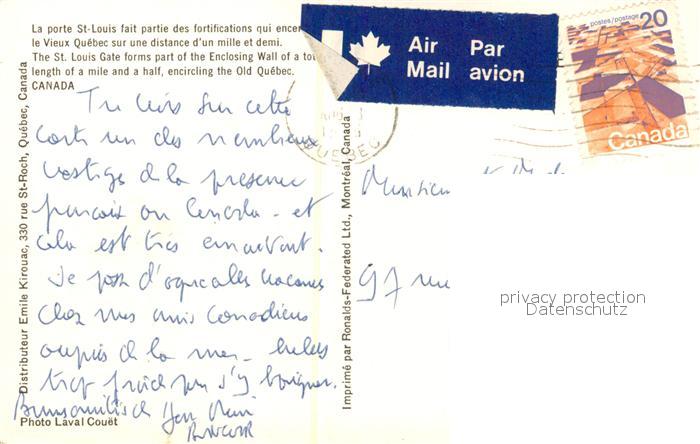 La porte St-Louis fait partie des fortifications qui encer
le Vieux Québec sur une distance d'un mille et demi.
The St. Louis Gate forms part of the Enclosing Wall of a tot
length of a mile and a half, encircling the Old Québec.
CANADA
Air Par
Mail avion
postes/postage 20
Canada
QUEBEC
Tu vois sur cette
carte un des nombreux
vestiges de la présence
française au Canada - et
cela est très émouvant.
Je passe d'agréables vacances
chez mes amis Canadiens
auprès de la mer - hélas
trop froide pour s'y baigner.
Jean
Monsieur
97 rue
privacy protection
Datenschutz
Distributeur Emile Kirouac, 330 rue St-Roch, Québec, Canada
Imprimé par Ronalds-Federated Ltd., Montréal, Canada
Photo Laval Couët